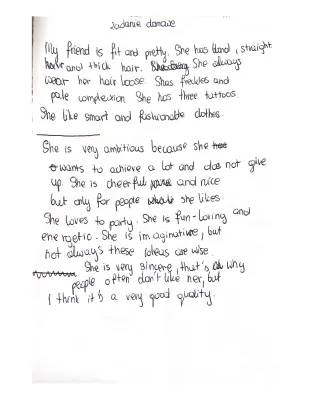 zadanie domowe
My friend is fit and pretty. She has blond, straight
hair and thick hair. She always
wear her hair loose. Shes freckles and
pale complexion. She has three tattoos.
She like smart and fashionable clothes.
She is very ambitious because she
wants to achieve a lot and does not give
up. She is cheerful and nice
but only for people she likes.
She loves to party. She is fun-loving and
energetic. She is imaginative, but
not always these ideas are wise.
She is very sincere, that's why
people often don't like her, but
I think it's a very good quality.